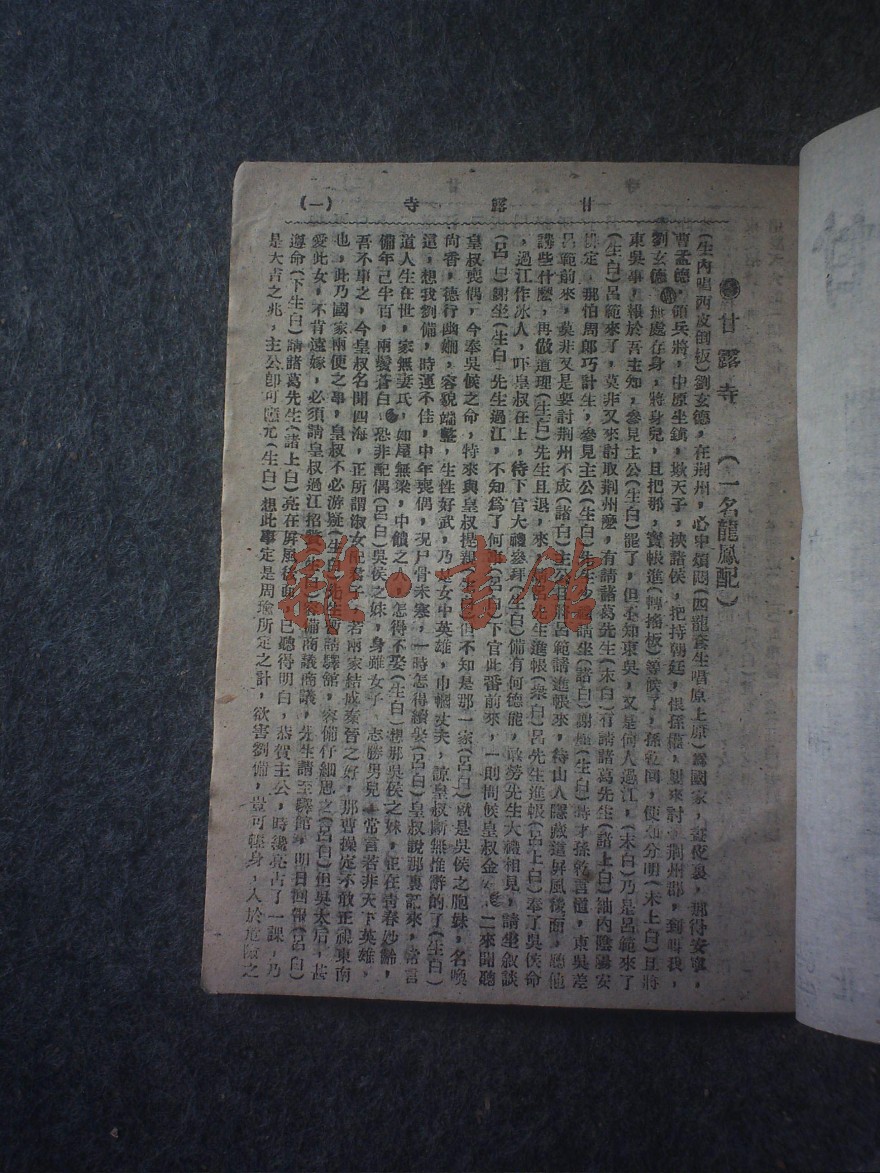 甘露寺 (一)
甘露寺 (一名龍鳳配)
(生內唱西皮倒板)劉玄德，在荆州，心中煩悶(四龍套生唱原上塲)爲國家，晝夜裏，那得安寧，
曹孟德，領兵將，中原坐鎮，欺天子，挾諸侯，把持朝廷，恨孫權，屢來討，荆州郡，到叫我，
劉玄德，無處存身，將身兒，且把那，寶帳進(轉搖板)等候了，孫乾回，便知分明(末上白)且將
東吳事，報於吾主知，參見主公(生白)罷了，但不知東吳，又是何人過江，(末白)乃是呂範來了
(生白)呂範來了，莫非又來討取荆州麽，有請諸葛先生(末白)有請諸葛先生(諸上白)袖內陰陽安
排定，那怕周郎巧計生，參見主公(生白)先生
請坐(諸白)謝座(生白)時才孫乾言道，東吳差
呂範前來，莫非又是要討荆州不成(諸白)主
呂範請進帳來，待山人隱藏這屏風後面，聽他
講些什麽，再做道理(生白)先生且退，來，
先生進帳(衆白)呂先生進帳(呂上白)奉了吳侯命
，過江作冰人，吓皇叔在上，待下官大禮參拜(生白)備有何德能，敢勞先生大禮相見，請坐敘談
(呂白)謝坐(生白)先生過江，不知爲了何事(呂白)下官此番前來，一則問候皇叔金安，二來聞聽
皇叔喪偶，今奉吳侯之命，特來與皇叔提親(生白)但不知是那一家(呂白)就是吳侯之胞妹，名喚
尚香，德行幽嫺，容貌端整，生性好武，乃是女中英雄，巾幗丈夫，諒皇叔斷無推辭的了(生白)
這，想我劉備，時運不佳，中年喪偶，況尸骨未寒，一時怎得續娶(呂白)皇叔說那裏話來，常言
道人生在世，家無妻氏，如屋無梁，中饋之
，怎得不娶(生白)想那吳侯之妹，正在青春妙齡，
備年已半百，兩鬢蒼白，恐非配偶(呂白)吳侯之妹，身雖女子，志勝男兒，常言若非天下英雄，
吾不事之，今皇叔名聞四海，正所謂淑女配君子，若兩家結成秦晉之好，那曹操定不敢正視東南
也，此乃國家兩便之事，皇叔不必游疑(生白)先生暫請驛館，容備仔細思之(呂白)但吳太后，甚
愛此女，不肯遠嫁，必須請皇叔過江招
備商議商議，先生請至驛館，明日回報(呂白)
遵命(下生白)請諸葛先生(諸上白)亮在屏風後面，已聽得明白，恭賀主公，時纔亮占了一課，乃
是大吉之兆，主公卽可應允(生白)想此事定是周瑜所定之計，欲害劉備，豈可輕身，入於危險之
雜·書館